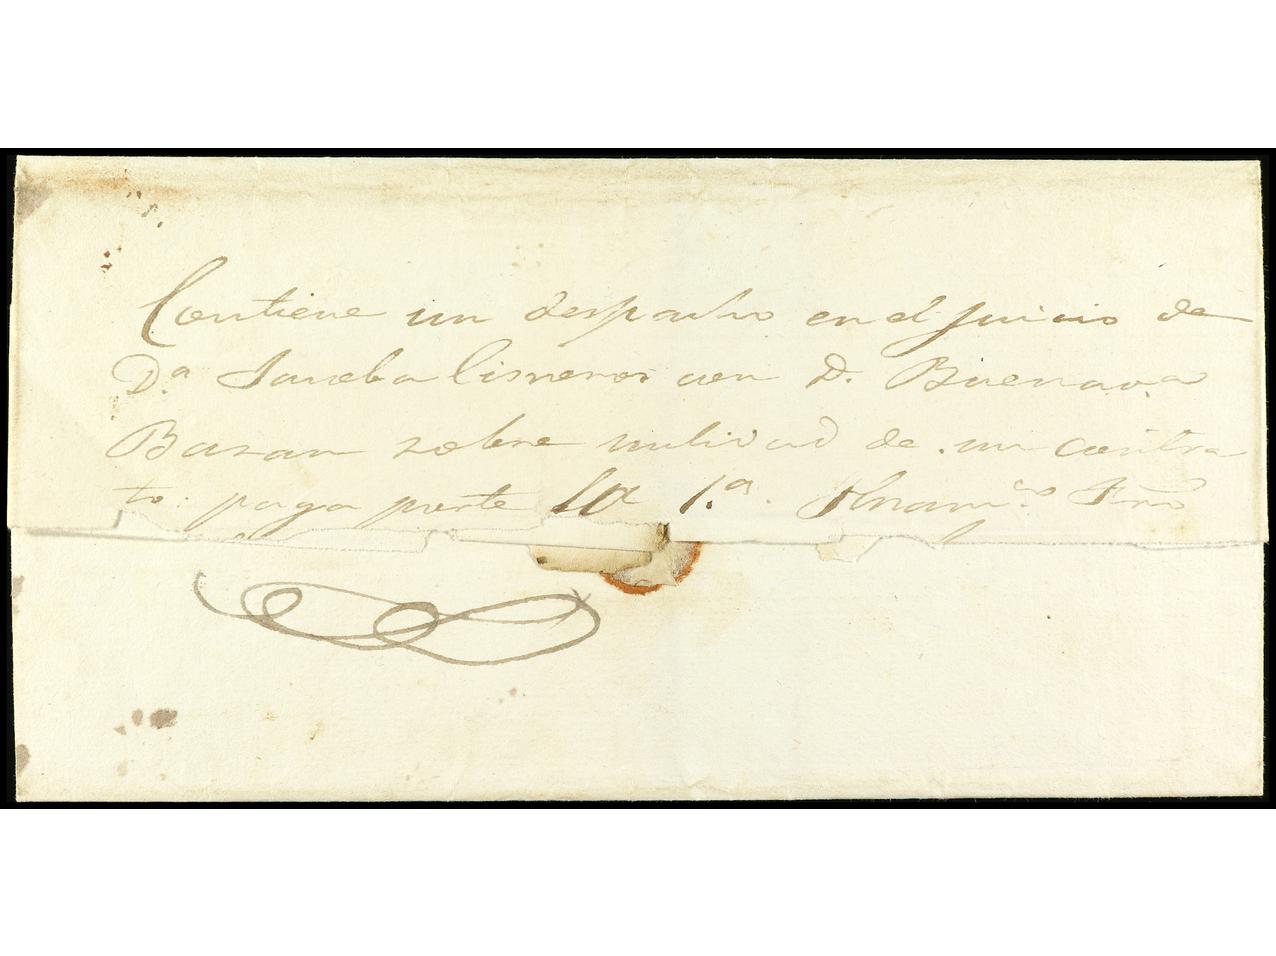 Contiene un despacho en el juicio de
D.a Cisneros con D. Buenav.a
Bazan sobre nulidad de un contra
to. paga parte la 1.a